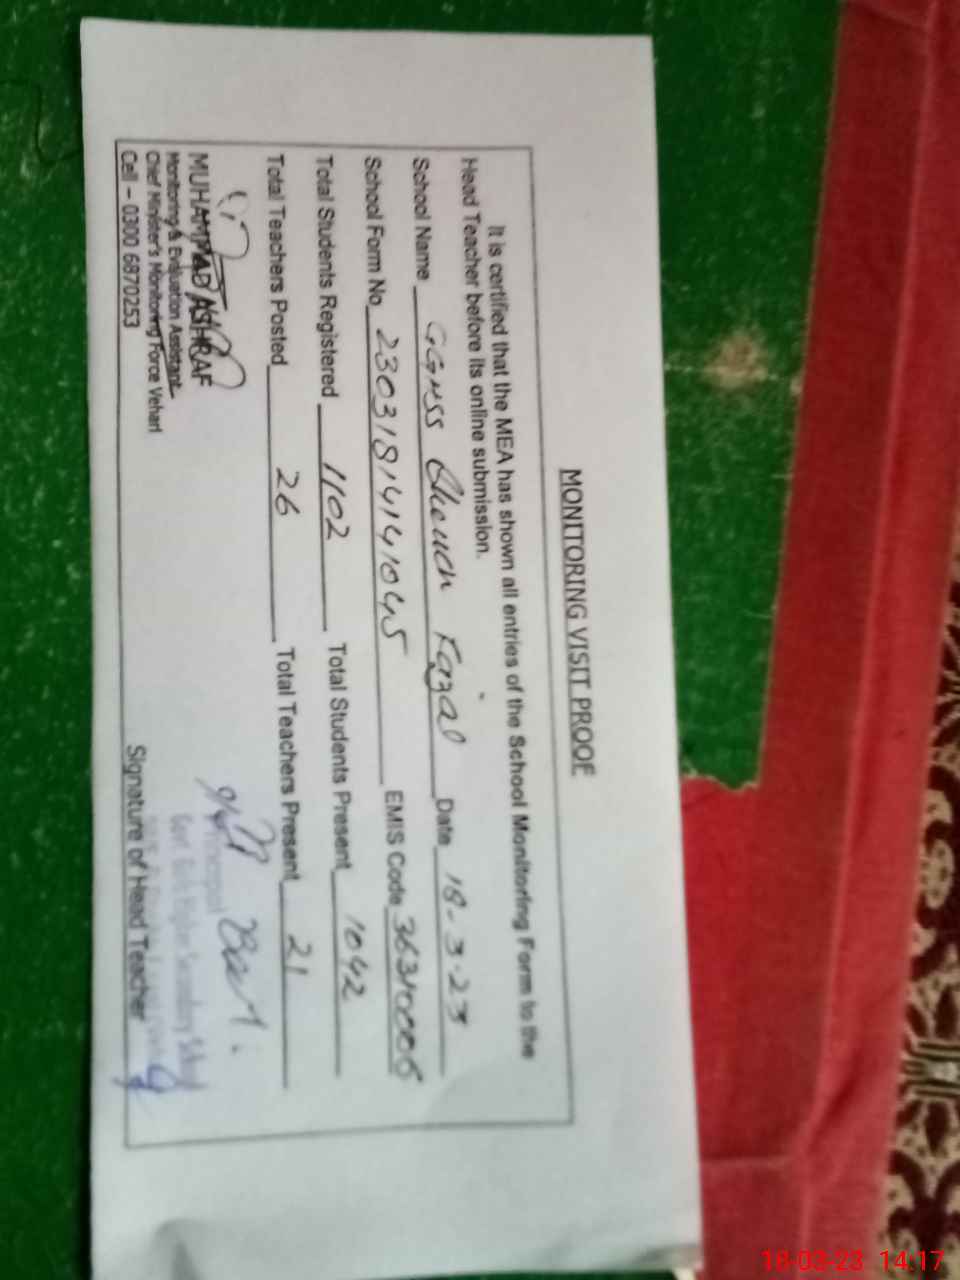 MONITORING VISIT PROOF
It is certified that the MEA has shown all entries of the School Monitoring Form to the
Head Teacher before its online submission.
School Name GGHSS Fazal Date 18-3-23
School Form No 23031814141045 EMIS Code
Total Students Registered 1102 Total Students Present 1042
Total Teachers Posted 26 Total Teachers Present 21
MUHAMMAD ASHRAF
Monitoring & Evaluation Assistant
Chief Minister's Monitoring Force Vehari
Cell – 0300 6870253
Principal
Govt. Girls Higher Secondary School
Signature of Head Teacher
18-03-23 14:17